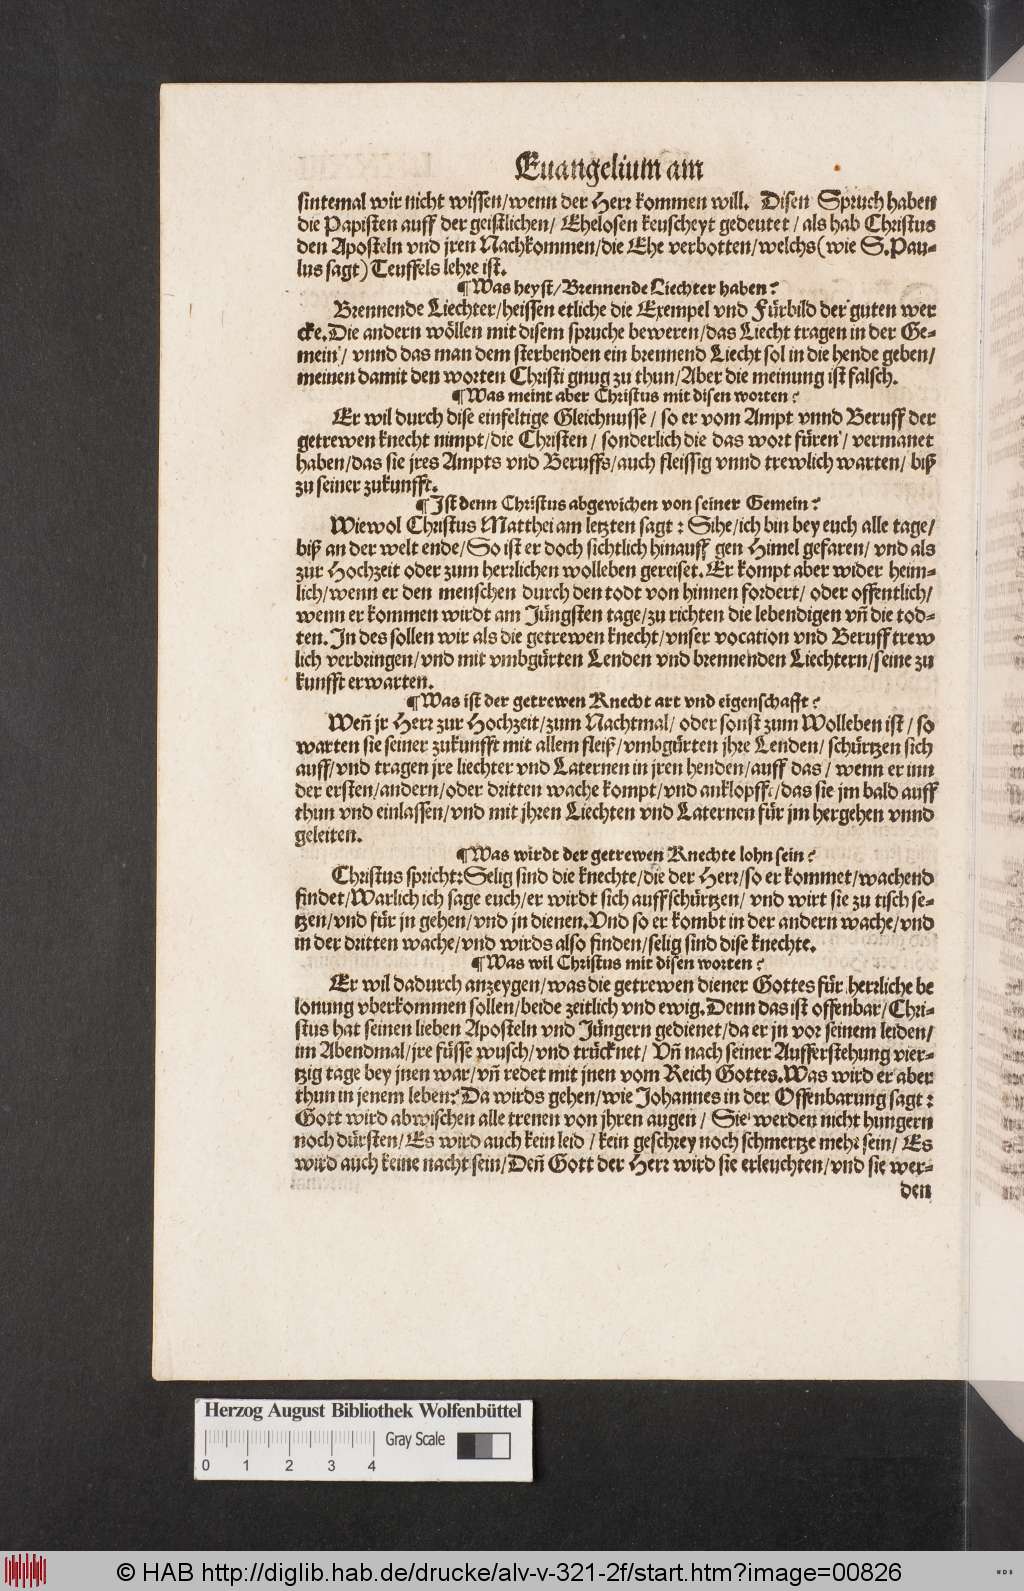 Euangelium am
sintemal wir nicht wissen/wenn der Herr kommen will. Disen Spruch haben
die Papisten auff der geistlichen/ Ehelosen keuscheyt gedeutet/als hab Christus
den Aposteln vnd jren Nachkommen/die Ehe verbotten/welchs(wie S.Pau-
lus sagt) Teuffels lehre ist.
¶Was heyst/Brennende Liechter haben?
Brennende Liechter/heissen etliche die Exempel vnd Fürbild der guten wer
cke.Die andern wöllen mit disem spruche beweren/das Liecht tragen in der Ge-
mein/ vnnd das man dem sterbenden ein brennend Liecht sol in die hende geben/
meinen damit den worten Christi gnug zu thun/Aber die meinung ist falsch.
¶Was meint aber Christus mit disen worten?
Er wil durch dise einfeltige Gleichnusse/ so er vom Ampt vnnd Beruff der
getrewen knecht nimpt/die Christen/ sonderlich die das wort füren/ vermanet
haben/das sie jres Ampts vnd Beruffs/auch fleissig vnnd trewlich warten/ biß
zu seiner zukunfft.
¶Ist denn Christus abgewichen von seiner Gemein?
Wiewol Christus Matthei am letzten sagt: Sihe/ich bin bey euch alle tage/
biß an der welt ende/So ist er doch sichtlich hinauff gen Himel gefaren/ vnd als
zur Hochzeit oder zum herrlichen wolleben gereiset.Er kompt aber wider heim-
lich/wenn er den menschen durch den todt von hinnen fordert/ oder offentlich/
wenn er kommen wirdt am Jüngsten tage/zu richten die lebendigen vñ die tod-
ten.In des sollen wir als die getrewen knecht/vnser vocation vnd Beruff trew
lich verbringen/vnd mit vmbgürten Lenden vnd brennenden Liechtern/seine zu
kunfft erwarten.
¶Was ist der getrewen Knecht art vnd eigenschafft?
Weñ jr Herr zur Hochzeit/zum Nachtmal/ oder sonst zum Wolleben ist/ so
warten sie seiner zukunfft mit allem fleiß/vmbgürten jhre Lenden/ schürtzen sich
auff/vnd tragen jre liechter vnd Laternen in jren henden/auff das/ wenn er inn
der ersten/andern/oder dritten wache kompt/vnd anklopffe/das sie jm bald auff
thun vnd einlassen/vnd mit jhren Liechten vnd Laternen für jm hergehen vnnd
geleiten.
¶Was wirdt der getrewen Knechte lohn sein?
Christus spricht:Selig sind die knechte/die der Herr/so er kommet/wachend
findet/Warlich ich sage euch/er wirdt sich auffschürtzen/ vnd wirt sie zu tisch se-
tzen/vnd für jn gehen/vnd jn dienen.Vnd so er kombt in der andern wache/vnd
in der dritten wache/vnd wirds also finden/selig sind dise knechte.
¶Was wil Christus mit disen worten?
Er wil dadurch anzeygen/was die getrewen diener Gottes für herrliche be
lonung vberkommen sollen/beide zeitlich vnd ewig.Denn das ist offenbar/Chri-
stus hat seinen lieben Aposteln vnd Jüngern gedienet/da er jn vor seinem leiden/
im Abendmal/jre füsse wusch/vnd trücknet/ Vñ nach seiner Aufferstehung vier-
tzig tage bey jnen war/vñ redet mit jnen vom Reich Gottes.Was wird er aber
thun in jenem leben? Da wirds gehen/wie Johannes in der Offenbarung sagt:
Gott wird abwischen alle trenen von jhren augen/ Sie werden nicht hungern
noch dürsten/Es wird auch kein leid/ kein geschrey noch schmertze mehr sein/ Es
wird auch keine nacht sein/Deñ Gott der Herr wird sie erleuchten/vnd sie wer-
den
Herzog August Bibliothek Wolfenbüttel
Gray Scale
0 1 2 3 4
© HAB http://diglib.hab.de/drucke/alv-v-321-2f/start.htm?image=00826